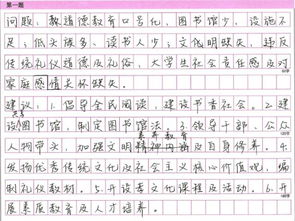 第一题
问题：教道德教育口号化，图书馆少，设施不
足；低头族多、读书人少；文化明缺失，违反
传统礼仪道德及礼俗，大学生社会责任感及对
家庭感情关怀缺失。
建议：1.倡导全民阅读，建设书香社会。2.建
设图书馆，制定图书馆法。3.领导干部、公众
素养教育
人物带头，加强文明精神内涵及自身修养。4.
发扬优秀传统文化及社会主义核心价值观，编
制礼仪教材。5.开设孝文化课程及活动。6.开
展素质教育及人才培养。